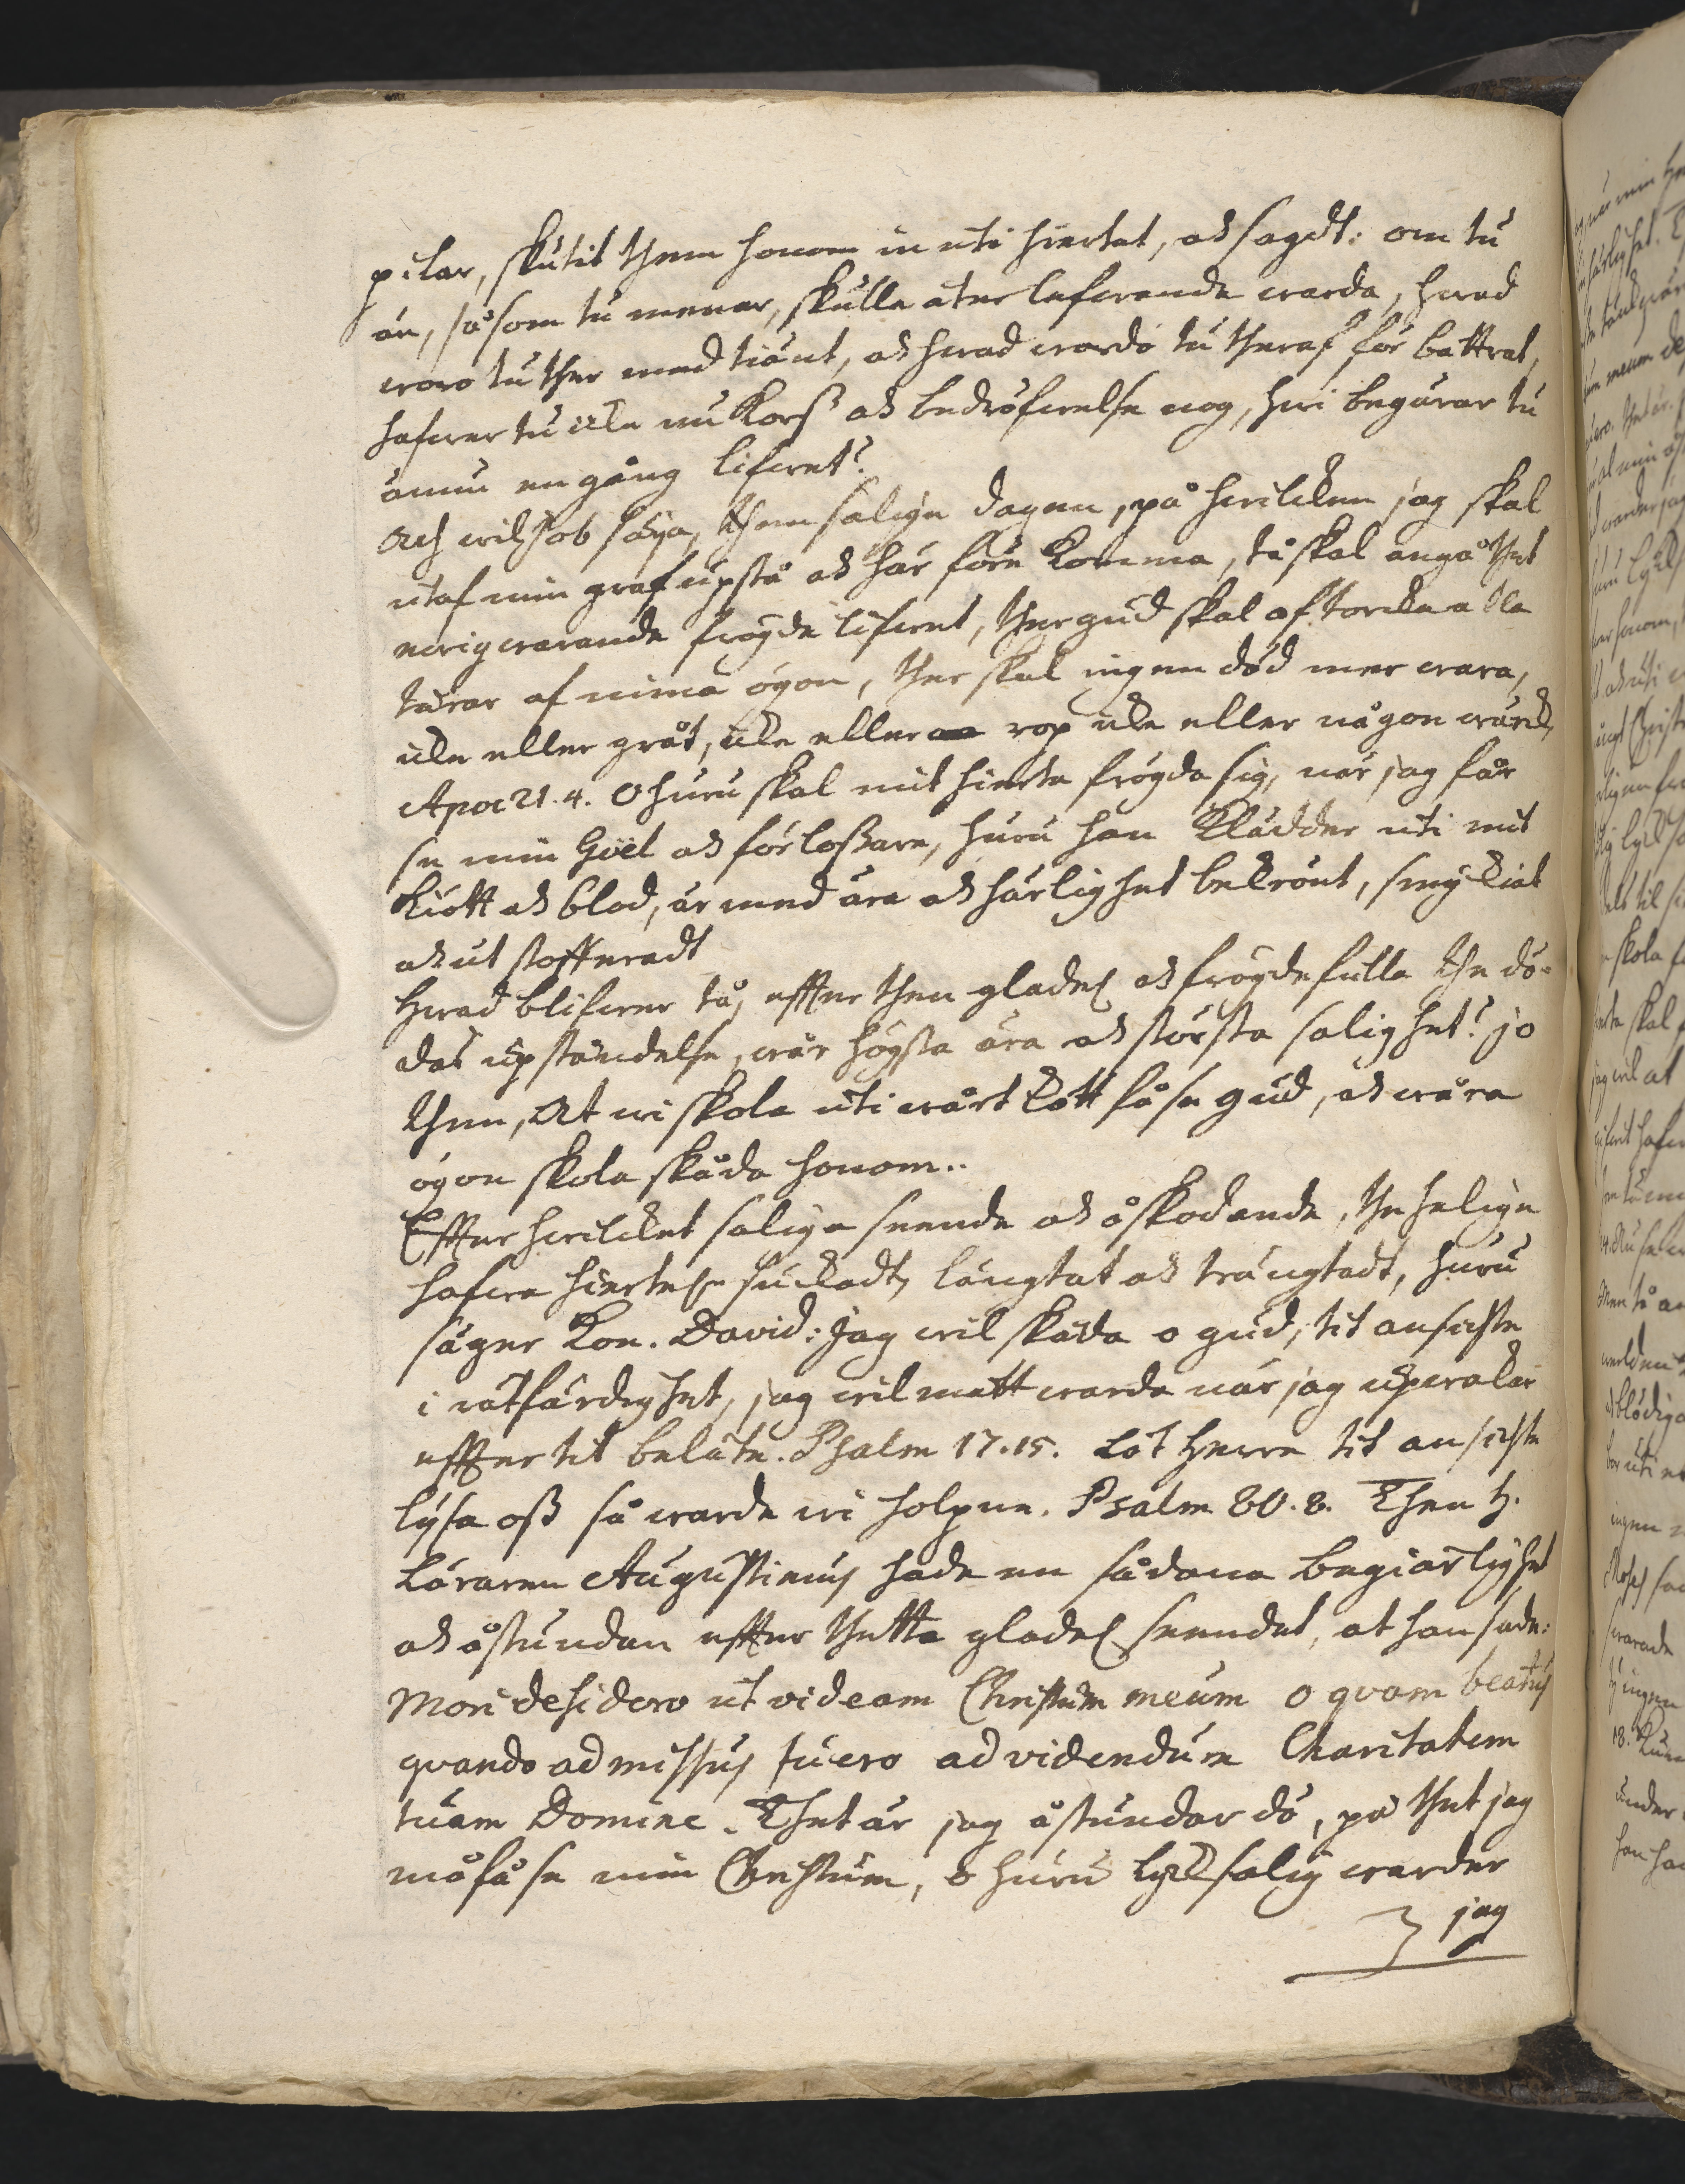 pilar, skutit them honom in uti hiertat, och sagdt: om tu
än, såsom tu menar, skulle åter lefwande warda, hwad
woro tu ther med tiänt, och hwad wordo tu theraf för bättrat,
hafwer tu icke nu Korß och bedröfwelse nog, hwi begärar tu
ännu en gång lifwet?
Ach wil Job säya, them salige dagen, på hwilcken jag skal
utaf min graf upstå och här före Komma, tå skal angå thet
ewigwarande frögde lifwet, ther gud skal aftorcka alla
tårar af mina ögon, ther skal ingen död mer wara,
icke eller gråt, icke eller rop icke eller någon wärck,
Apoc 21. 4. O huru skal mit hierta frögda sig, när jag får
se min Goël och förloßare, huru han Klädder uti mit
Kiött och blod, är med ära och härlighet bekrönt, smyckiat
och ut stofferadt
Hwad blifwer tå, effter then glades och frögdefulla the dö-
das upståndelse, wår högsta ära och största salighet? jo
then, At wi skole uti wårt kött få se gud, och wåra
ögon skola skåda honom..
Effter hwilcket saliga seende och åskodande, the helige
hafwa hiertel. suckadt, längtat och trängtadt, huru
säger Kon. David: Jag wil skåda o gud, tit ansichte
i rätfärdighet, jag wil mätt warda när jag upwakar
effter tit beläte. Psalm 17.15. Låt Herre tit ansichte
lysa oß så warde wi holpne. Psalm 80. 8. Then H.
Läraren Augustinus hade en sådana begiärlighet
och åstundan effter thetta glades seendet, at han sade:
Mori desidero ut videam Christum meum o qvam beatus
qvando admissus fuero ad videndum Charitatem
tuam Domine. Thet är jag åstundar dö, på thet jag
må få se min Christum, o huru lycksalig warder
jag